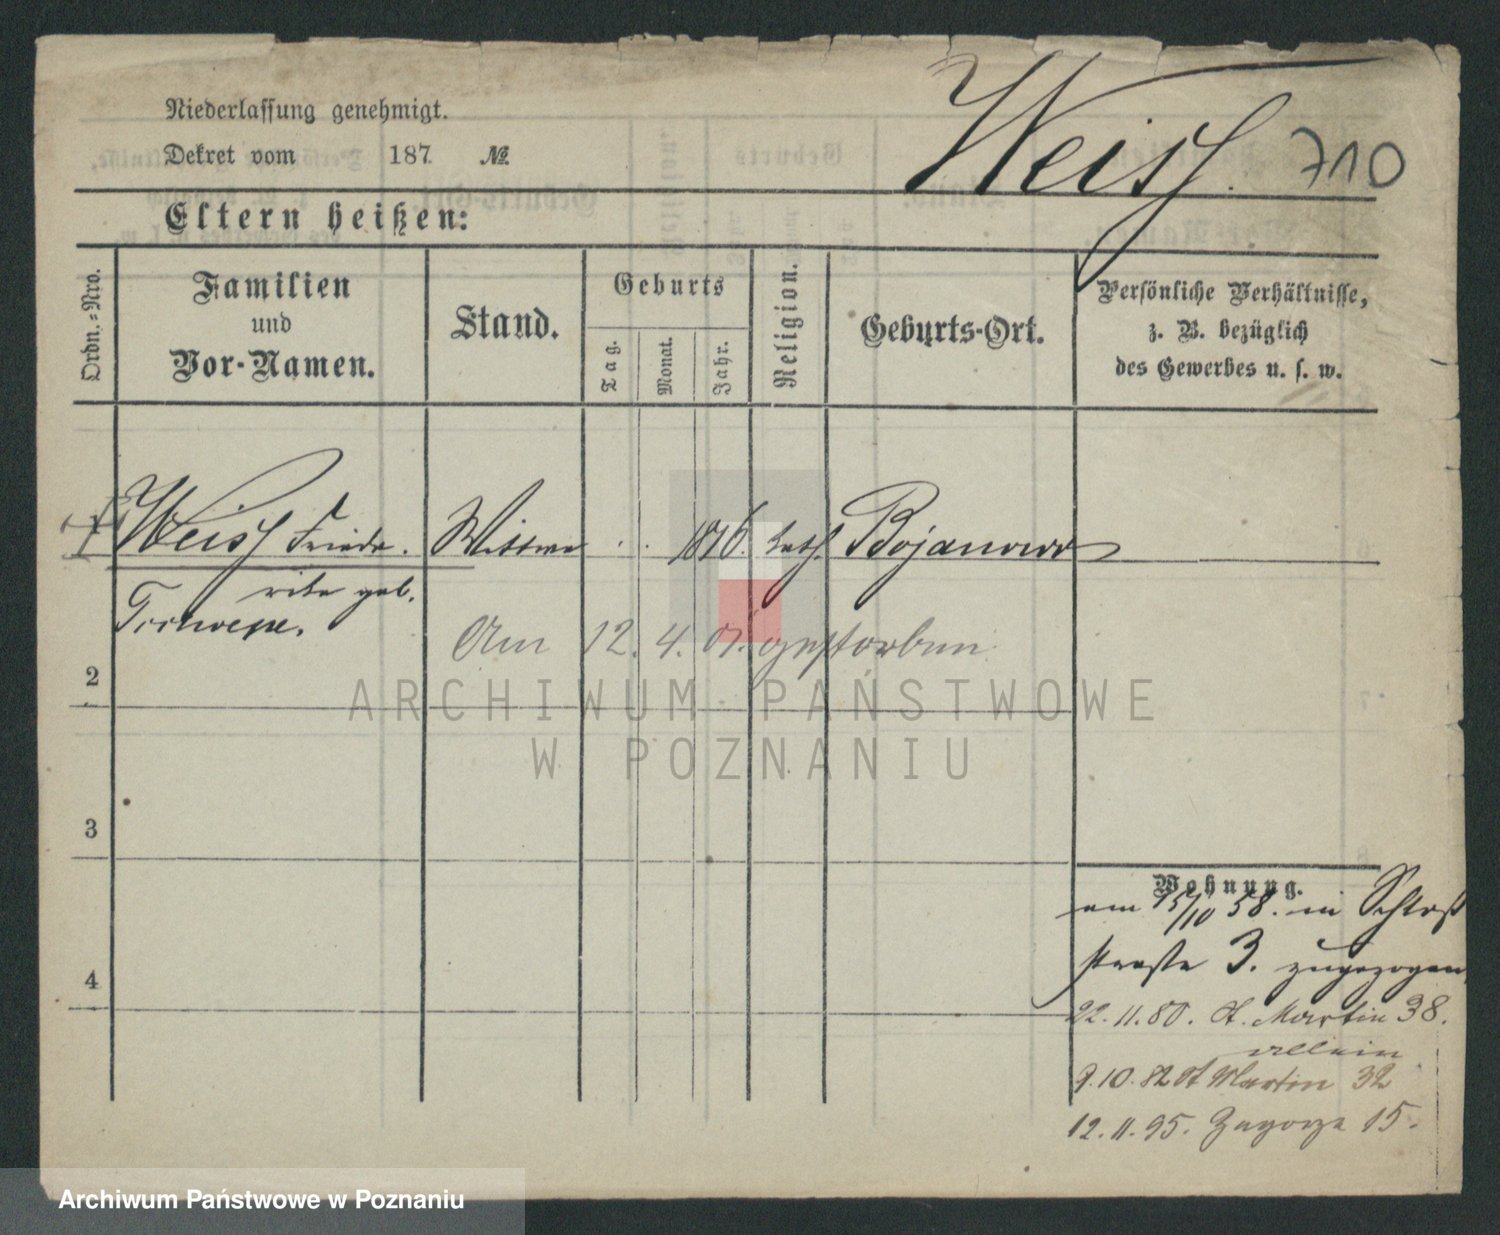 Niederlassung genehmigt.
Dekret vom 187 №
Weiss. 710
Eltern heißen:
Ordn.=Nro.
Familien
und
Vor-Namen.
Stand.
Geburts
Tag.
Monat.
Jahr.
Religion.
Geburts-Ort.
Persönliche Verhältnisse,
z. B. bezüglich
des Gewerbes u. s. w.
1 Weiss Friede. Wittwe 1816. kath. Bojanowo
rike geb.
Am 12. 4. 01. gestorben
2
3
4
Wohnung.
am 15/10 58. in Schloß
straße 3. zugezogen
22. 11. 80. St. Martin 38.
allein
9. 10. 82 St Martin 32
12. 11. 95. Zagorze 15.
ARCHIWUM PAŃSTWOWE
W POZNANIU
Archiwum Państwowe w Poznaniu